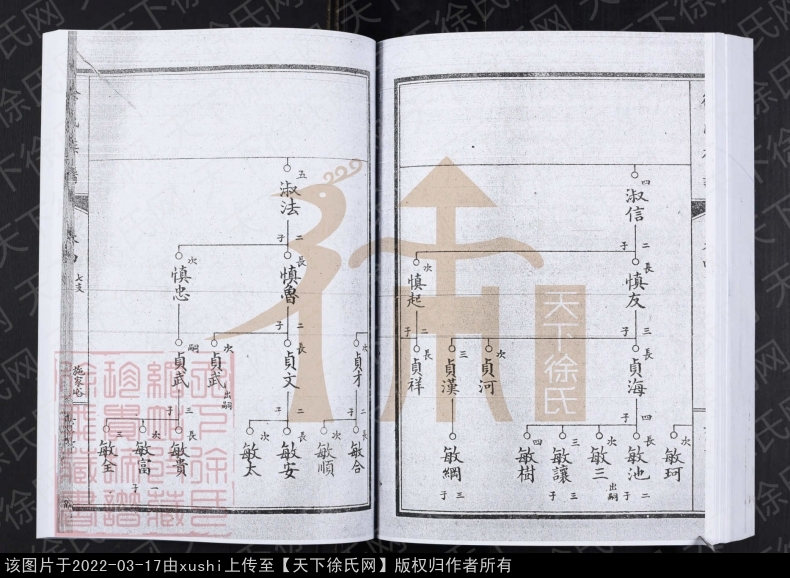 四
淑信
二子
長
慎友
次
慎起
三子
二子
長
貞海
次
貞河
三
貞漢
長
貞祥
四子
次
敏珂
長
敏池
二子
次
敏三
出嗣
三
敏讓
三子
四
敏樹
敏綱
三子
五
淑法
二子
長
慎魯
次
慎忠
二子
長
貞才
二子
長
貞文
二子
次
貞武
出嗣
嗣
貞武
三子
長
敏合
次
敏順
長
敏安
次
敏太
長
敏貴
次
敏富
一子
三
敏全
卷四
七支
施家峪
天下徐氏
天下徐氏网
该图片于2022-03-17由xushi上传至【天下徐氏网】版权归作者所有